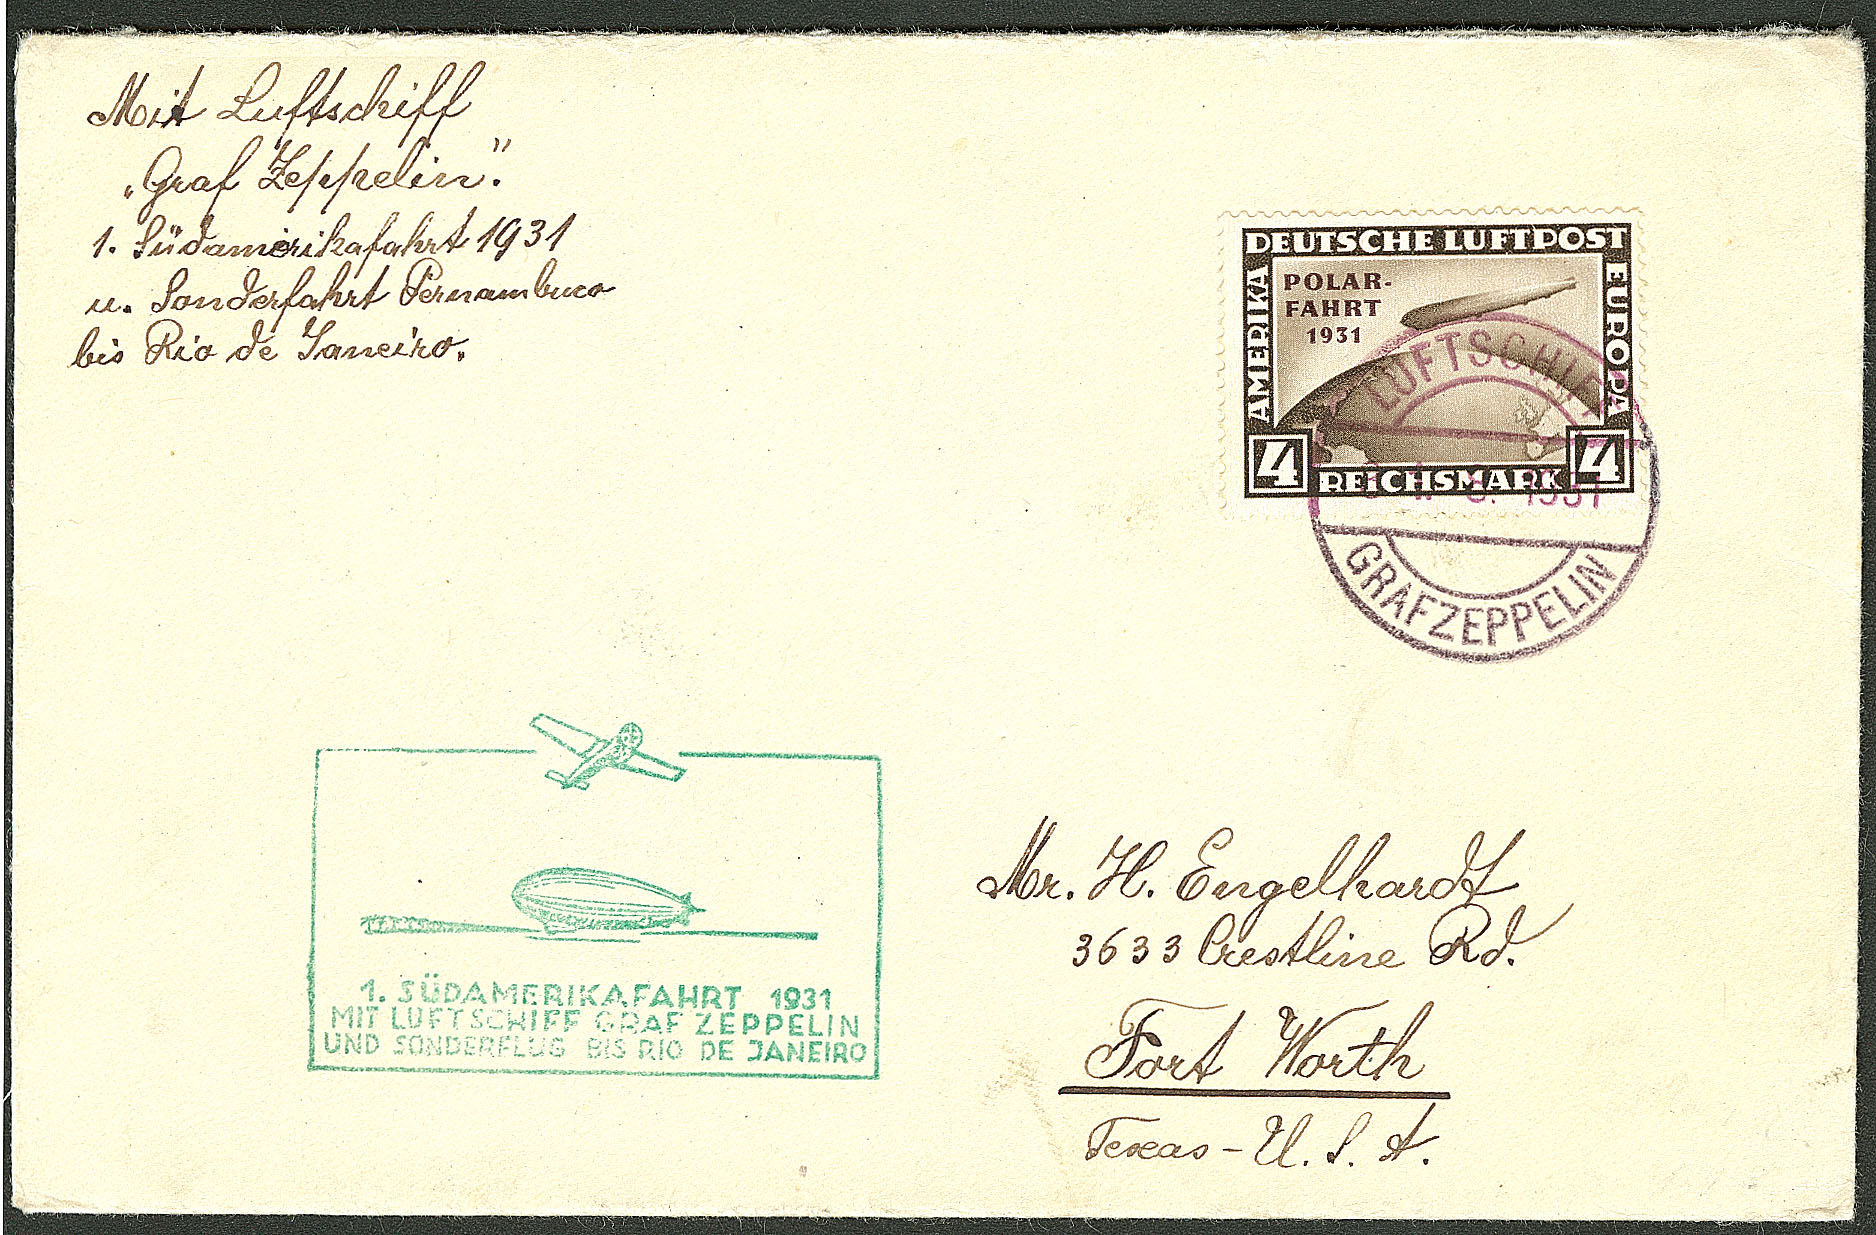 Mit Luftschiff
„Graf Zeppelin".
1. Südamerikafahrt 1931
u. Sonderfahrt Pernambuco
bis Rio de Janeiro.
DEUTSCHE LUFTPOST
AMERIKA
EUROPA
POLAR-
FAHRT
1931
4
REICHSMARK
4
LUFTSCHIFF
8. 1931
GRAF ZEPPELIN
1. SÜDAMERIKAFAHRT 1931
MIT LUFTSCHIFF GRAF ZEPPELIN
UND SONDERFLUG BIS RIO DE JANEIRO
Mr. H. Engelhardt
3633 Crestline Rd.
Fort Worth
Texas - U. S. A.